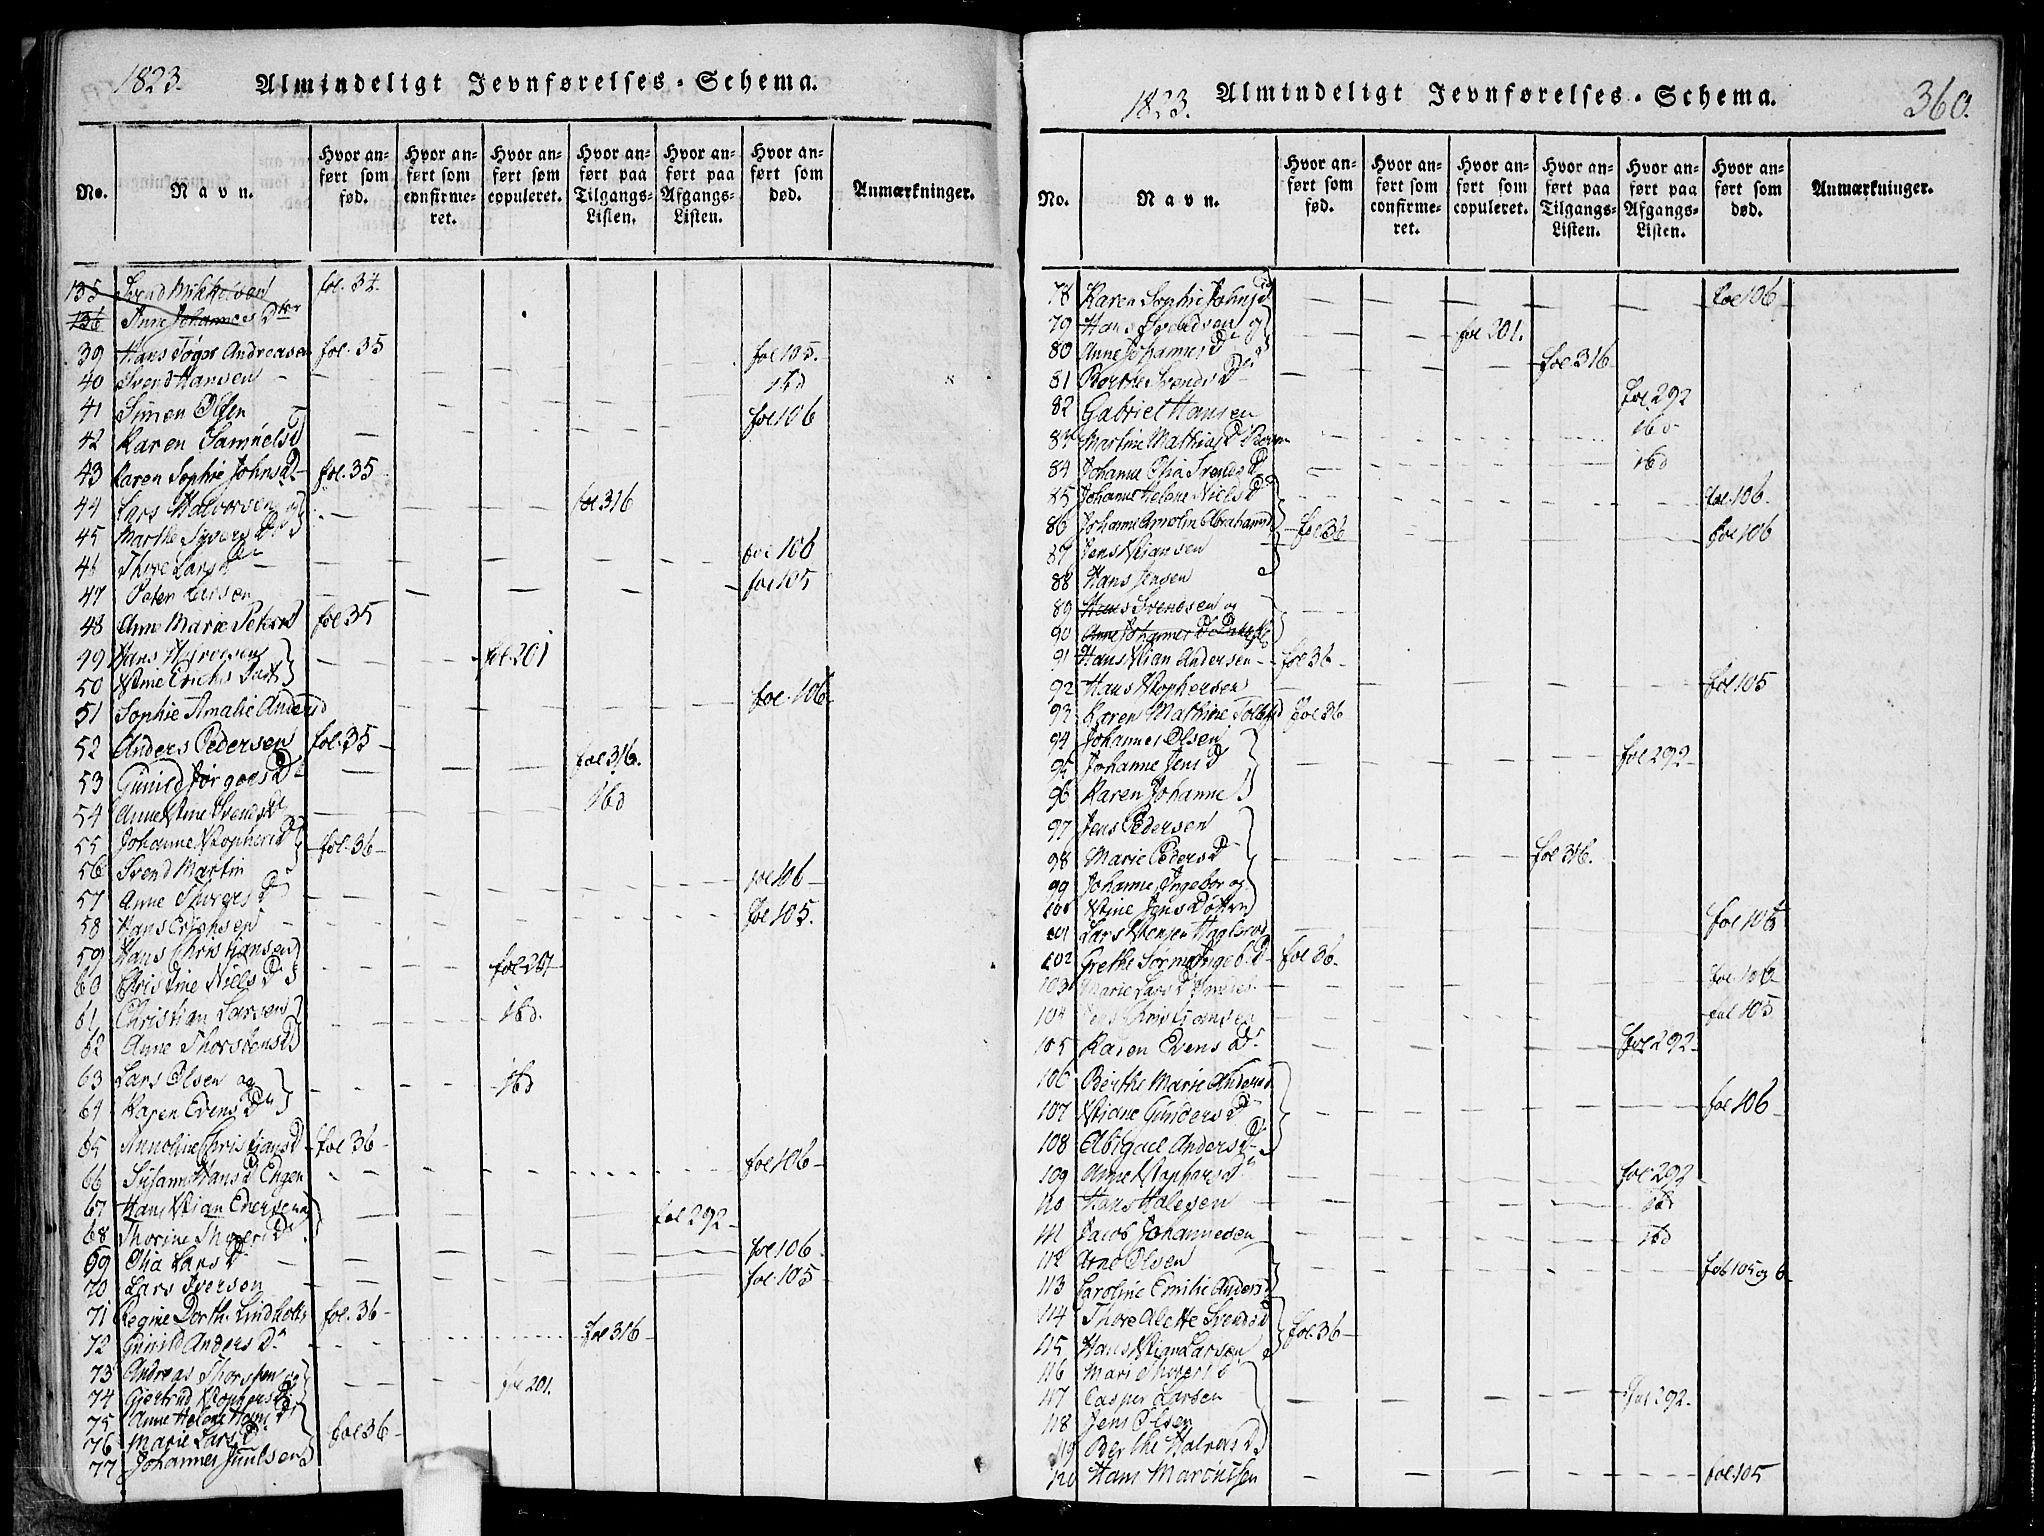 1823. Almindeligt Jevnførelses-Schema.
No. Navn. Hvor anført som fød. Hvor anført som confirmeret. Hvor anført som copuleret. Hvor anført paa Tilgangs-Listen. Hvor anført paa Afgangs-Listen. Hvor anført som død. Anmærkninger.
135 Svend Mikkelsen fol. 34.
136 Anne Johannes Dter
39 Hans Töger Andreasen fol. 35
fol 105.
40 Svend Hansen ibd
41 Simen Olsen fol 106
42 Karen Samuels D
43 Karen Sophie Johns D fol. 35
44 Lars Halvorsen og fol 316
45 Marthe Syvers Dr
46 Thore Lars Dr fol 106
47 Peter Larsen fol 105
48 Anne Marie Peters D fol 35
49 Hans
50 Stine Erichs Datt fol. 201
51 Sophie Amalie Anders D fol. 106
52 Anders Pedersen fol. 35
53 Gunild Jörgens Dr fol 316.
54 Anne Stine Svends D ibd
55 Johanne Xstophers D fol. 36
56 Svend Martin
57 Anne Thorers D fol 106
58 Hans Erichsen fol 105.
59 Hans Christiansen
60 Christine Niels D fol 201
61 Christian Larsen
62 Anne Thorstens D ibd.
63 Lars Olsen og
64 Karen Evens Dr ibd
65 Annoline Christians D fol 36
66 Susanne Hans D Engen fol 106
67 Hans Xstian Evensen
68 Thorine Thorers Dr fol 292
69 Olia Lars D fol 106
70 Lars Iversen fol 105
71 Regine Dorth. Lindholt fol. 36
72 Gunild Anders Dr fol 316
73 Andreas Thorsten og
74 Giertrud Xstophers D fol 201.
75 Anne Helene Hans D
76 Marie Lars D fol 36
77 Johannes Juulsen
1823. Almindeligt Jevnførelses-Schema. 360.
No. Navn. Hvor anført som fød. Hvor anført som confirmeret. Hvor anført som copuleret. Hvor anført paa Tilgangs-Listen. Hvor anført paa Afgangs-Listen. Hvor anført som død. Anmærkninger.
78 Karen Sophie Johns D fol 106
79 Hans Svendsen og
80 Anne Johannes D fol 201.
81 Berthe Svends D fol 316
82 Gabriel Hansen fol 292
83 Martine Mathias D ibd
84 Johanne Olia Svends D ibd
85 Johanne Helene Niels D fol 106
86 Johanne Amalie Abrahams D fol 36 fol 106
87 Jens Xstiansen
88 Hans Jensen
89 Hans Svendsen og
90 Anne Johannes D
91 Hans Xstian Andersen fol 36
92 Hans Xstophersen fol 105
93 Karen Mathine D fol 36
94 Johannes Olsen
95 Johanne Jens D fol 292
96 Karen Johanne
97 Jens Pedersen
98 Marie Peders D fol 316.
99 Johanne Ingebor og
100 Stine Jens Döttre
101 Lars fol 105
102 Grethe D fol 36.
103 Marie Lars D fol 106
104 Jens Christiansen fol 105
105 Karen Evens Dr fol 292
106 Berthe Marie Anders D
107 Xstiane Gunders D fol 106
108 Abigael Anders D
109 Anne Xstophers D fol 292
110 Hans Halesen ibd
111 Jacob Johannesen ibd
112 Arne Olsen
113 Caroline Emilie Anders D fol 105 og 6
114 Thore Alette Svends D
115 Hans Xstian Larsen fol. 36
116 Mari Thorers D
117 Casper Larsen fol 292.
118 Jens Olsen
119 Berthe Halvors D
120 Hans Marcussen fol. 105